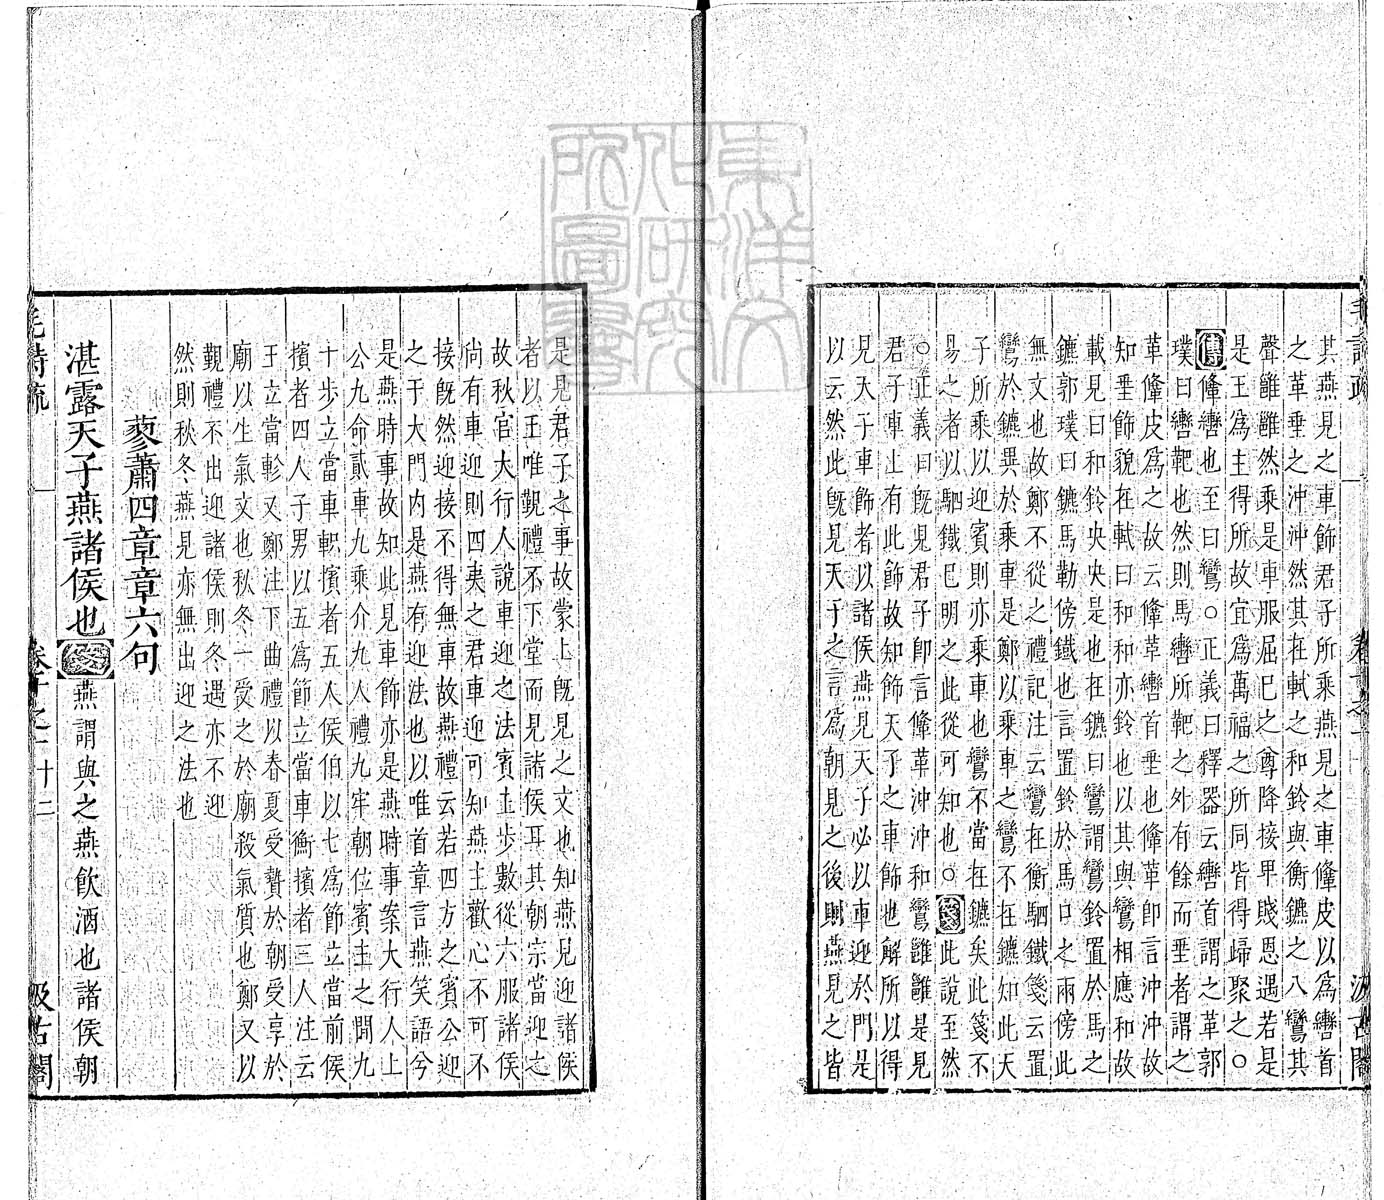 其燕見之車飾君子所乘燕見之車鞗皮以爲轡首
之革垂之沖沖然其在軾之和鈴與衡鑣之八鸞其
聲雝雝然乘是車服屈巳之尊降接卑賤恩遇若是
是王爲主得所故宜爲萬福之所同皆得歸聚之○
傳鞗轡也至曰鸞○正義曰釋器云轡首謂之革郭
璞曰轡靶也然則馬轡所靶之外有餘而垂者謂之
革鞗皮爲之故云鞗革轡首垂也鞗革卽言沖沖故
知垂飾貌在軾曰和和亦鈴也以其與鸞相應和故
載見曰和鈴央央是也在鑣曰鸞謂鸞鈴置於馬之
鑣郭璞曰鑣馬勒傍鐵也言置鈴於馬口之兩傍此
無文也故鄭不從之禮記注云鸞在衡駟鐵箋云置
鸞於鑣異於乘車是鄭以乘車之鸞不在鑣知此天
子所乘以迎賓則亦乘車也鸞不當在鑣矣此箋不
易之者以駟鐵巳明之此從可知也○箋此說至然
○正義曰旣見君子卽言鞗革沖沖和鸞雝雝是見
君子車上有此飾故知飾天子之車飾也解所以得
見天子車飾者以諸侯燕見天子必以車迎於門是
以云然此旣見天子之言爲朝見之後則燕見之皆
是見君子之事故蒙上旣見之文也知燕見迎諸侯
者以王唯覲禮不下堂而見諸侯耳其朝宗當迎之
故秋官大行人說車迎之法賓主步數從六服諸侯
尚有車迎則四夷之君車迎可知燕主歡心不可不
接旣然迎接不得無車故燕禮云若四方之賓公迎
之于大門內是燕有迎法也以唯首章言燕笑語兮
是燕時事故知此見車飾亦是燕時事案大行人上
公九命貳車九乘介九人禮九牢朝位賓主之閒九
十步立當車軹擯者五人侯伯以七爲節立當前侯
擯者四人子男以五爲節立當車衡擯者三人注云
王立當軫又鄭注下曲禮以春夏受贄於朝受享於
廟以生氣文也秋冬一受之於廟殺氣質也鄭又以
覲禮不出迎諸侯則冬遇亦不迎
然則秋冬燕見亦無出迎之法也
蓼蕭四章章六句
湛露天子燕諸侯也箋燕謂與之燕飲酒也諸侯朝
毛詩疏
卷十之一
十二
汲古閣